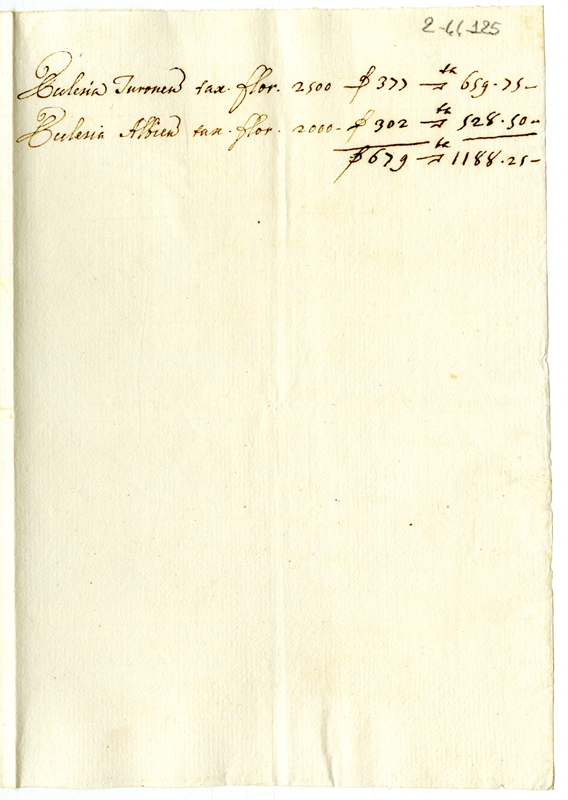 2-66-125
Ecclesia Turonen tax. flor. 2500 - ƒ 377 - 659.75-
Ecclesia Albien tax. flor. 2000- ƒ 302 - 528.50-
ƒ 679 - 1188.25-